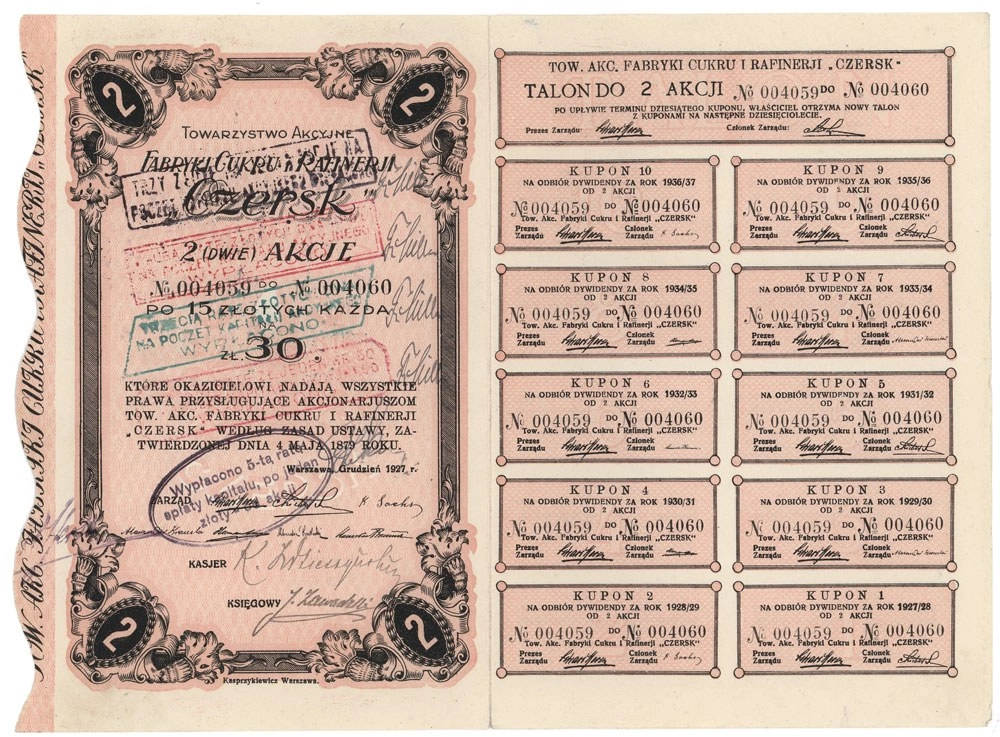 2
2
TOWARZYSTWO AKCYJNE
FABRYKI CUKRU I RAFINERJI
CZERSK
2 (DWIE) AKCJE
№ 004059 DO № 004060
PO 15 ZŁOTYCH KAŻDA
ZŁ. 30.
TRZECIA
NA POCZET KAPITAŁU
KTÓRE OKAZICIELOWI NADAJĄ WSZYSTKIE
PRAWA PRZYSŁUGUJĄCE AKCJONARJUSZOM
TOW. AKC. FABRYKI CUKRU I RAFINERJI
„CZERSK" WEDŁUG ZASAD USTAWY, ZA-
TWIERDZONEJ DNIA 4 MAJA 1879 ROKU.
Warszawa, Grudzień 1927 r.
Wypłacono 5-tą ratę
spłaty kapitału, po
złoty
akcji
ZARZĄD
KASJER
KSIĘGOWY
2
2
Kasprzykiewicz Warszawa.
TOW. AKC. FABRYKI CUKRU I RAFINERJI „CZERSK"
TALON DO 2 AKCJI № 004059 DO № 004060
PO UPŁYWIE TERMINU DZIESIĄTEGO KUPONU, WŁAŚCICIEL OTRZYMA NOWY TALON
Z KUPONAMI NA NASTĘPNE DZIESIĘCIOLECIE.
Prezes Zarządu: Członek Zarządu:
KUPON 10
NA ODBIÓR DYWIDENDY ZA ROK 1936/37
OD 2 AKCJI
№ 004059 DO № 004060
Tow. Akc. Fabryki Cukru i Rafinerji „CZERSK"
Prezes Członek
Zarządu Zarządu
KUPON 9
NA ODBIÓR DYWIDENDY ZA ROK 1935/36
OD 2 AKCJI
№ 004059 DO № 004060
Tow. Akc. Fabryki Cukru i Rafinerji „CZERSK"
Prezes Członek
Zarządu Zarządu
KUPON 8
NA ODBIÓR DYWIDENDY ZA ROK 1934/35
OD 2 AKCJI
№ 004059 DO № 004060
Tow. Akc. Fabryki Cukru i Rafinerji „CZERSK"
Prezes Członek
Zarządu Zarządu
KUPON 7
NA ODBIÓR DYWIDENDY ZA ROK 1933/34
OD 2 AKCJI
№ 004059 DO № 004060
Tow. Akc. Fabryki Cukru i Rafinerji „CZERSK"
Prezes Członek
Zarządu Zarządu
KUPON 6
NA ODBIÓR DYWIDENDY ZA ROK 1932/33
OD 2 AKCJI
№ 004059 DO № 004060
Tow. Akc. Fabryki Cukru i Rafinerji „CZERSK"
Prezes Członek
Zarządu Zarządu
KUPON 5
NA ODBIÓR DYWIDENDY ZA ROK 1931/32
OD 2 AKCJI
№ 004059 DO № 004060
Tow. Akc. Fabryki Cukru i Rafinerji „CZERSK"
Prezes Członek
Zarządu Zarządu
KUPON 4
NA ODBIÓR DYWIDENDY ZA ROK 1930/31
OD 2 AKCJI
№ 004059 DO № 004060
Tow. Akc. Fabryki Cukru i Rafinerji „CZERSK"
Prezes Członek
Zarządu Zarządu
KUPON 3
NA ODBIÓR DYWIDENDY ZA ROK 1929/30
OD 2 AKCJI
№ 004059 DO № 004060
Tow. Akc. Fabryki Cukru i Rafinerji „CZERSK"
Prezes Członek
Zarządu Zarządu
KUPON 2
NA ODBIÓR DYWIDENDY ZA ROK 1928/29
OD 2 AKCJI
№ 004059 DO № 004060
Tow. Akc. Fabryki Cukru i Rafinerji „CZERSK"
Prezes Członek
Zarządu Zarządu
KUPON 1
NA ODBIÓR DYWIDENDY ZA ROK 1927/28
OD 2 AKCJI
№ 004059 DO № 004060
Tow. Akc. Fabryki Cukru i Rafinerji „CZERSK"
Prezes Członek
Zarządu Zarządu